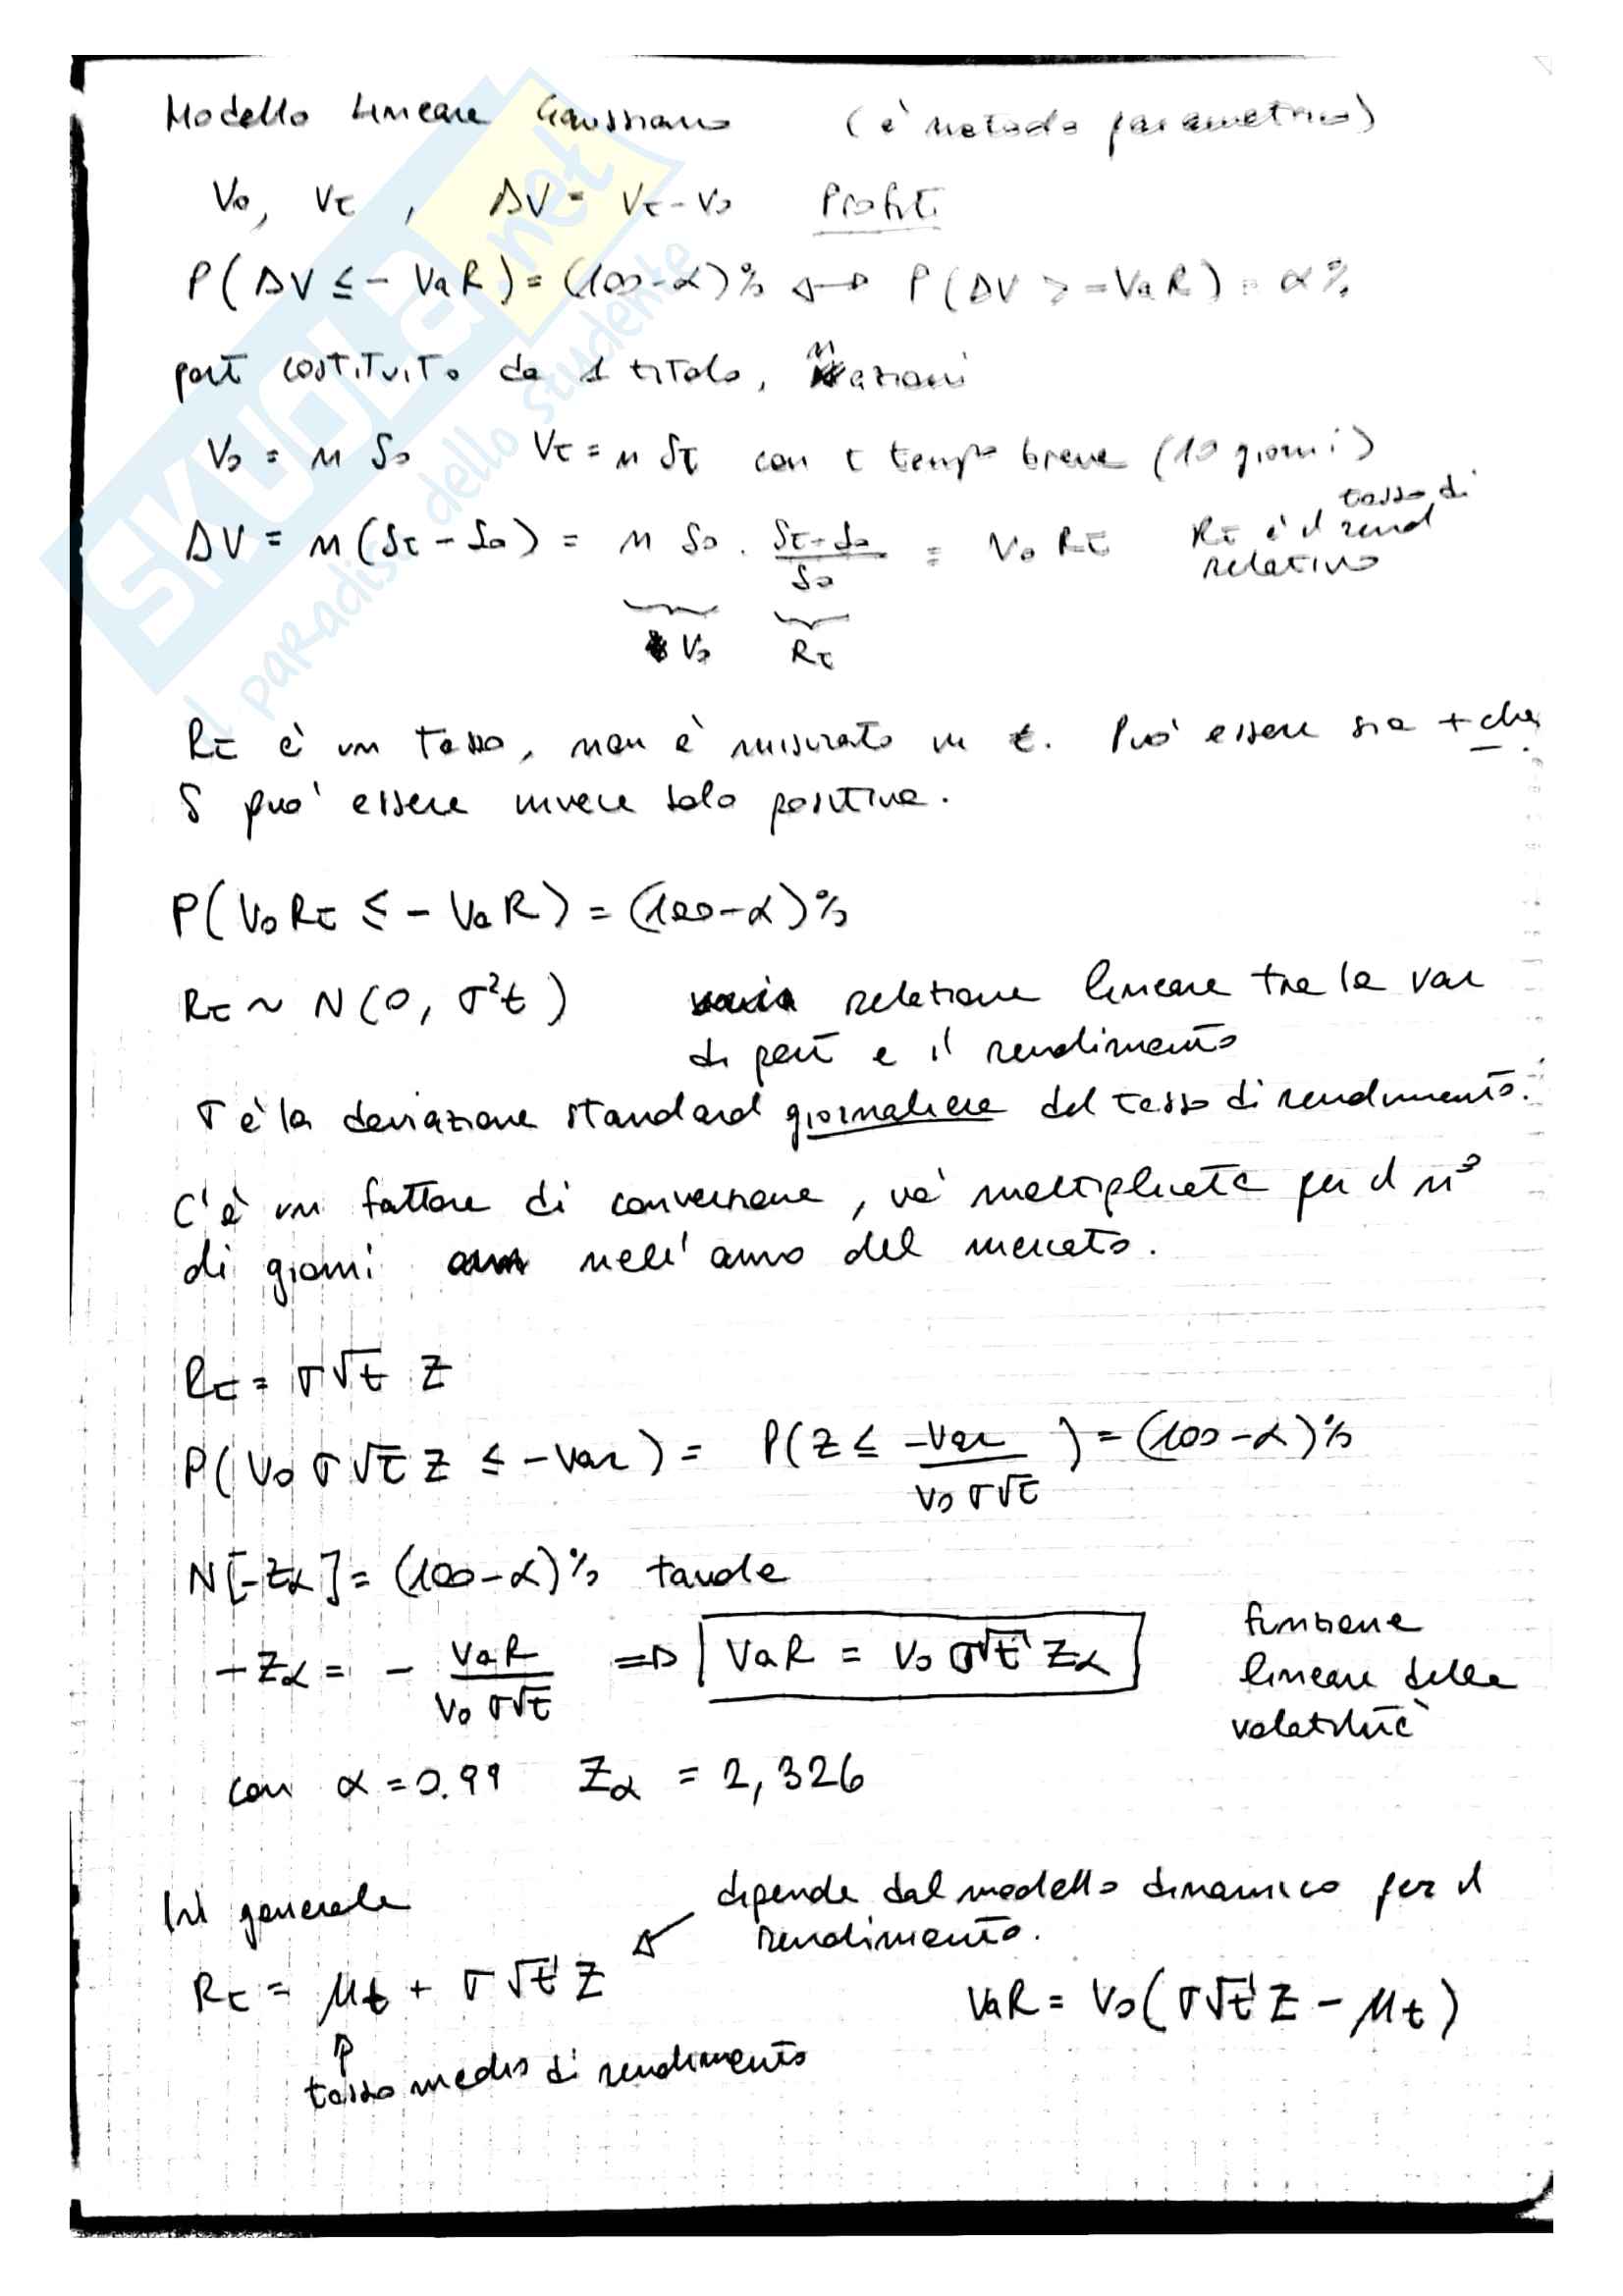 Modello Lineare Gaussiano (è metodo parametrico)
V₀, Vτ, ΔV = Vτ - V₀ Profit
P(ΔV ≤ - VaR) = (100-α)% ↔ P(ΔV > -VaR) = α%
port costituito da 1 titolo, n azioni
V₀ = n S₀ Vτ = n Sτ con τ tempo breve (10 giorni)
ΔV = n(Sτ - S₀) = n S₀ · (Sτ - S₀)/S₀ = V₀ Rτ Rτ è il tasso di rend relativo
V₀ Rτ
Rτ è un tasso, non è misurato in €. Può essere sia + che -
S può essere invece solo positiva.
P(V₀ Rτ ≤ - VaR) = (100-α)%
Rτ ~ N(0, σ²t) relazione lineare tra la var
di port e il rendimento
σ è la deviazione standard giornaliera del tasso di rendimento.
C'è un fattore di conversione, va moltiplicata per il n°
di giorni nell'anno del mercato.
Rτ = σ√t Z
P(V₀ σ√τ Z ≤ - Var) = P(Z ≤ -Var/(V₀ σ√τ)) = (100-α)%
N[-Zα] = (100-α)% tavole
-Zα = - VaR/(V₀ σ√τ) ⇒ VaR = V₀ σ√t Zα
funzione
lineare della
volatilità
con α = 0.99 Zα = 2,326
IN generale
dipende dal modello dinamico per il
rendimento.
Rτ = μt + σ√t Z
VaR = V₀(σ√t Z - μt)
tasso medio di rendimento
SKUOLA.net
il paradiso dello studente